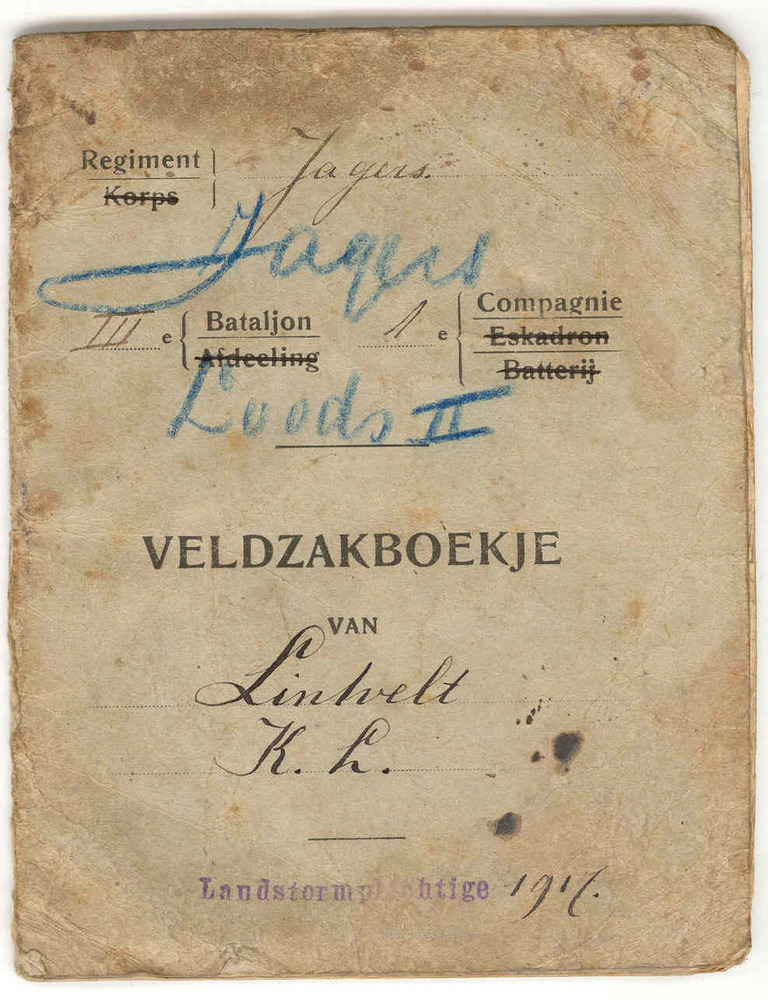 Regiment Jagers.
Korps
Jagers
III e Bataljon 1 e Compagnie
Afdeeling Eskadron
Batterij
Loods II
VELDZAKBOEKJE
VAN
Lintvelt
K. L.
Landstormplichtige 1917.